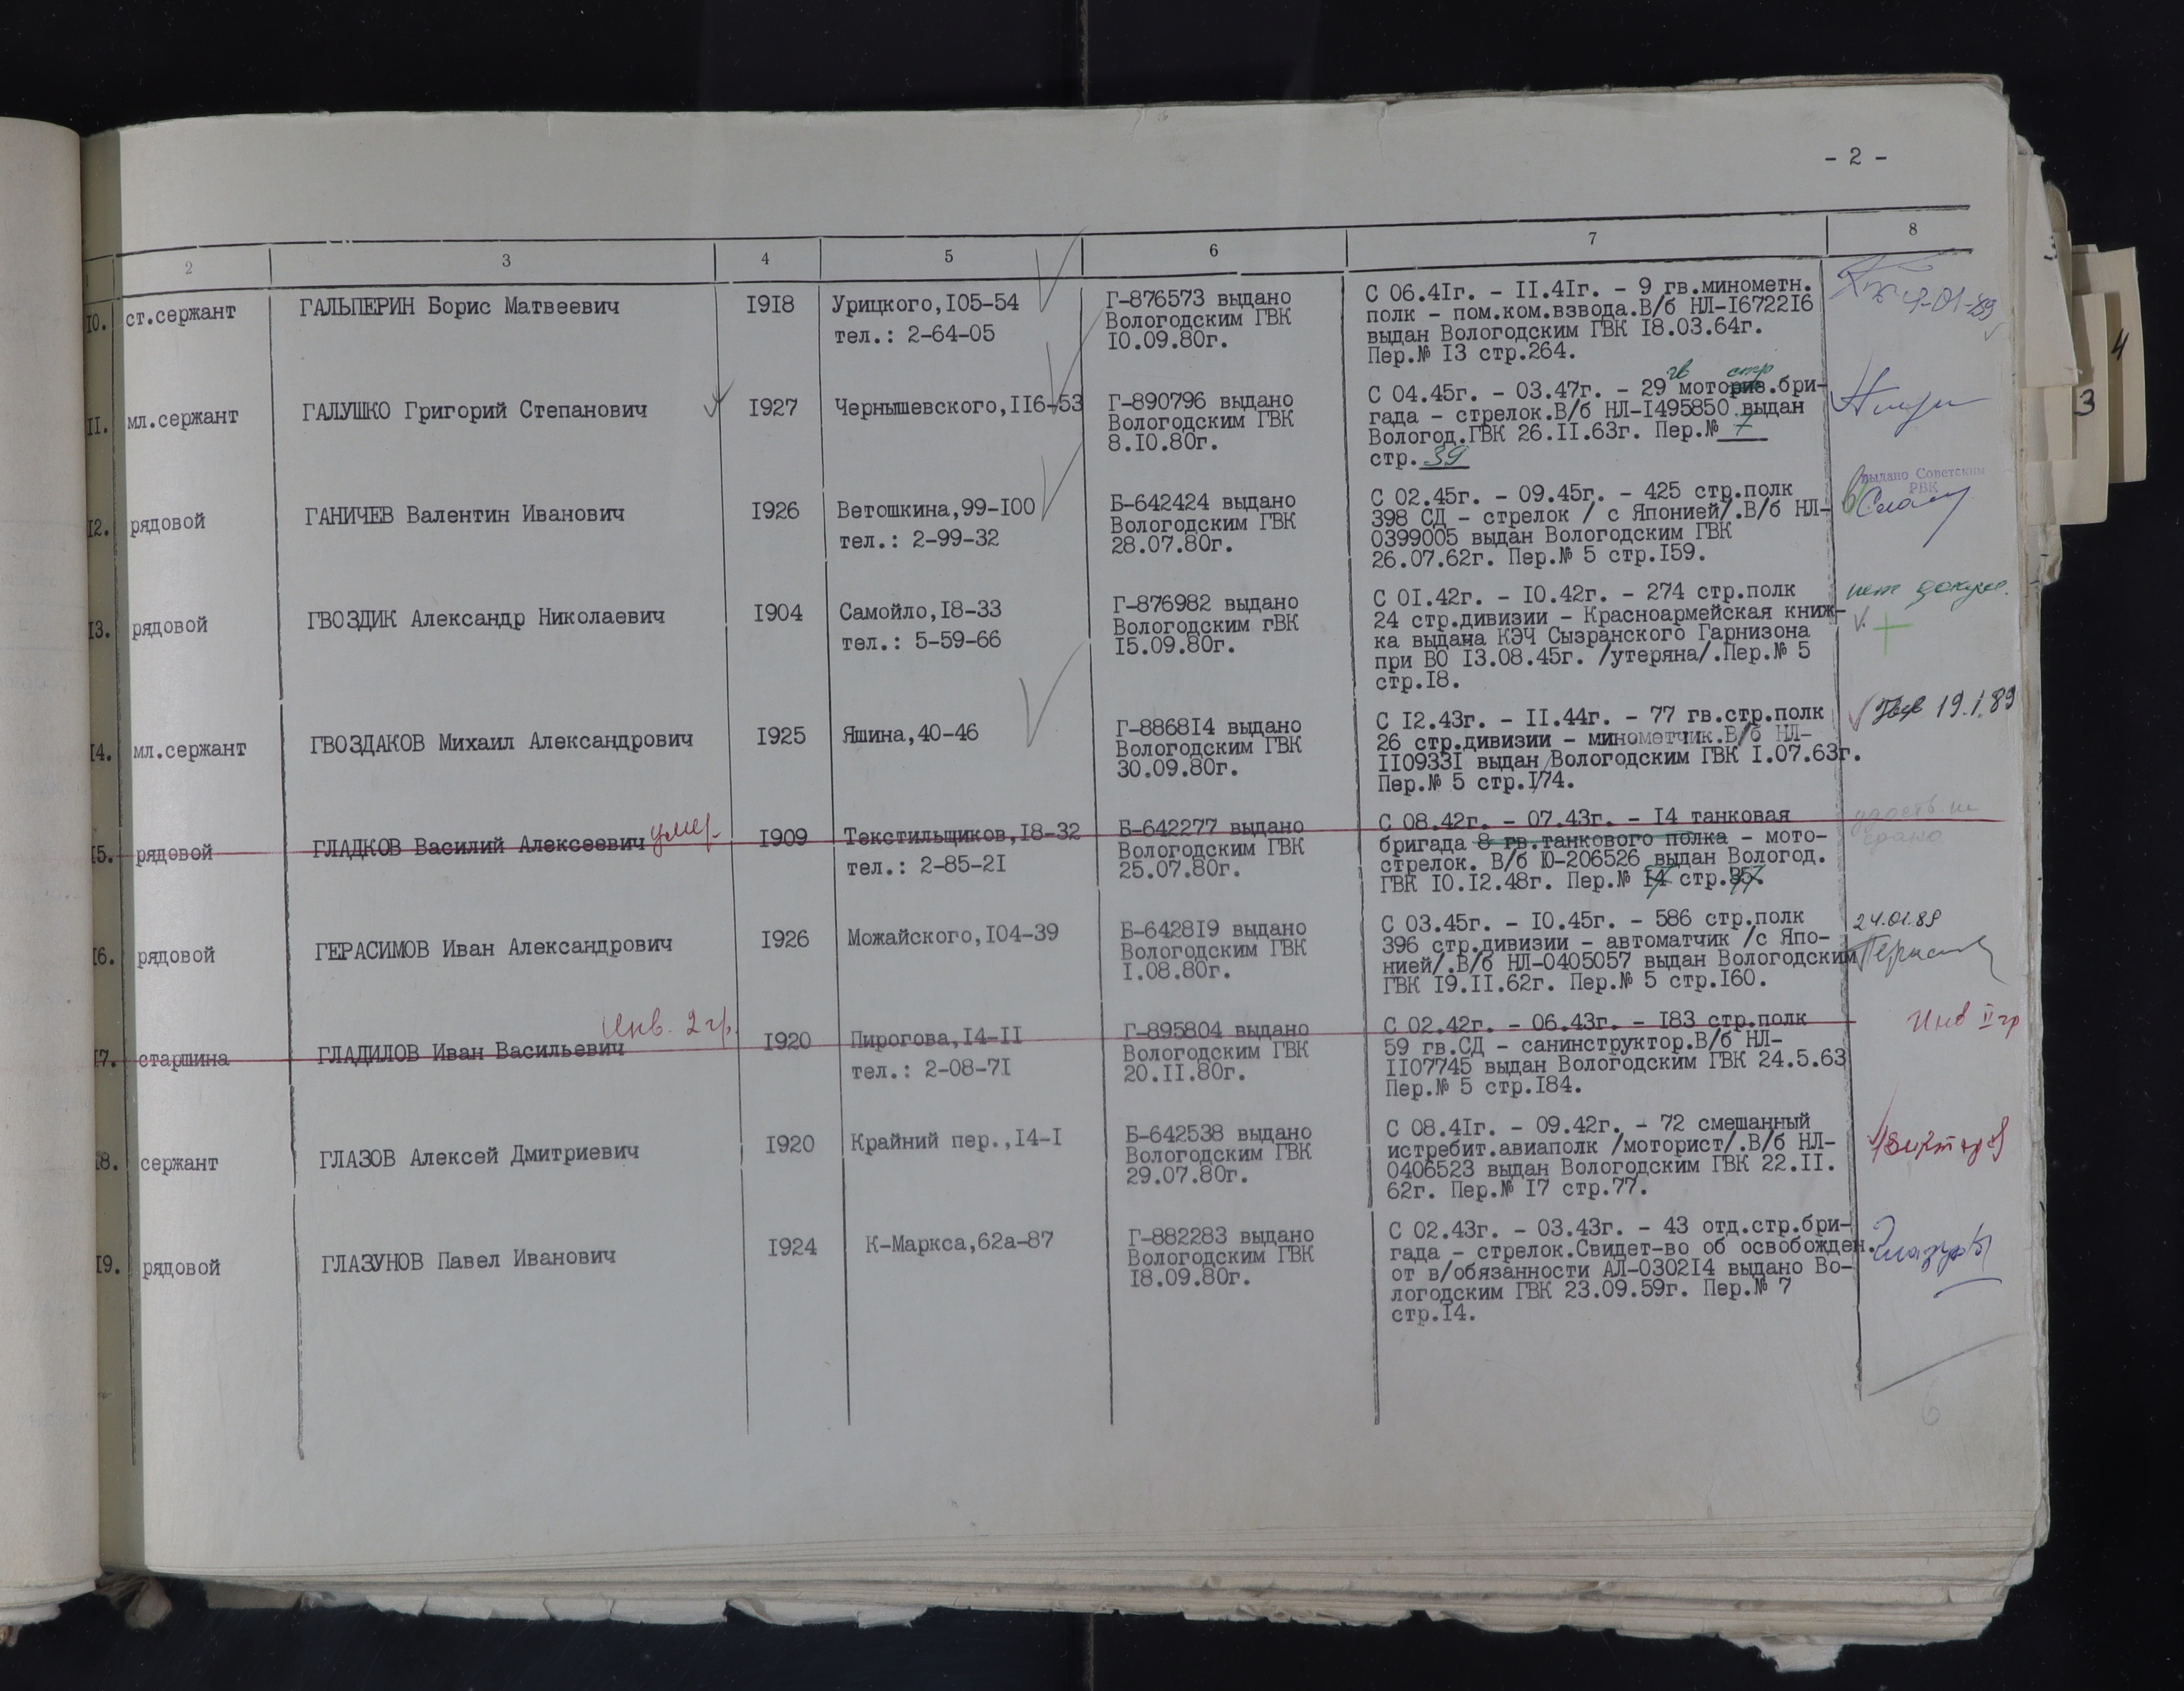 - 2 -
1 2 3 4 5 6 7 8
10. ст.сержант ГАЛЬПЕРИН Борис Матвеевич 1918 Урицкого,105-54
тел.: 2-64-05
Г-876573 выдано
Вологодским ГВК
10.09.80г.
С 06.41г. - 11.41г. - 9 гв.минометн.
полк - пом.ком.взвода.В/б НЛ-1672216
выдан Вологодским ГВК 18.03.64г.
Пер.№ 13 стр.264.
11. мл.сержант ГАЛУШКО Григорий Степанович 1927 Чернышевского,116-53
Г-890796 выдано
Вологодским ГВК
8.10.80г.
гв стр
С 04.45г. - 03.47г. - 29 моториз.бри-
гада - стрелок.В/б НЛ-1495850 выдан
Вологод.ГВК 26.11.63г. Пер.№ 7
стр. 39
12. рядовой ГАНИЧЕВ Валентин Иванович 1926 Ветошкина,99-100
тел.: 2-99-32
Б-642424 выдано
Вологодским ГВК
28.07.80г.
С 02.45г. - 09.45г. - 425 стр.полк
398 СД - стрелок / с Японией/.В/б НЛ-
0399005 выдан Вологодским ГВК
26.07.62г. Пер.№ 5 стр.159.
выдано Советским
РВК
13. рядовой ГВОЗДИК Александр Николаевич 1904 Самойло,18-33
тел.: 5-59-66
Г-876982 выдано
Вологодским гВК
15.09.80г.
С 01.42г. - 10.42г. - 274 стр.полк
24 стр.дивизии - Красноармейская книж-
ка выдана КЭЧ Сызранского Гарнизона
при ВО 13.08.45г. /утеряна/.Пер.№ 5
стр.18.
нет докум.
14. мл.сержант ГВОЗДАКОВ Михаил Александрович 1925 Яшина,40-46
Г-886814 выдано
Вологодским ГВК
30.09.80г.
С 12.43г. - 11.44г. - 77 гв.стр.полк
26 стр.дивизии - минометчик.В/б НЛ-
1109331 выдан Вологодским ГВК 1.07.63г.
Пер.№ 5 стр.174.
19.1.89
15. рядовой ГЛАДКОВ Василий Алексеевич умер 1909 Текстильщиков,18-32
тел.: 2-85-21
Б-642277 выдано
Вологодским ГВК
25.07.80г.
С 08.42г. - 07.43г. - 14 танковая
бригада 8 гв.танкового полка - мото-
стрелок. В/б Ю-206526 выдан Вологод.
ГВК 10.12.48г. Пер.№ 14 стр.357.
16. рядовой ГЕРАСИМОВ Иван Александрович 1926 Можайского,104-39
Б-642819 выдано
Вологодским ГВК
1.08.80г.
С 03.45г. - 10.45г. - 586 стр.полк
396 стр.дивизии - автоматчик /с Япо-
нией/.В/б НЛ-0405057 выдан Вологодским
ГВК 19.11.62г. Пер.№ 5 стр.160.
24.01.89
17. старшина ГЛАДИЛОВ Иван Васильевич Инв. 2 гр. 1920 Пирогова,14-11
тел.: 2-08-71
Г-895804 выдано
Вологодским ГВК
20.11.80г.
С 02.42г. - 06.43г. - 183 стр.полк
59 гв.СД - санинструктор.В/б НЛ-
1107745 выдан Вологодским ГВК 24.5.63
Пер.№ 5 стр.184.
Инв II гр
18. сержант ГЛАЗОВ Алексей Дмитриевич 1920 Крайний пер.,14-1
Б-642538 выдано
Вологодским ГВК
29.07.80г.
С 08.41г. - 09.42г. - 72 смешанный
истребит.авиаполк /моторист/.В/б НЛ-
0406523 выдан Вологодским ГВК 22.11.
62г. Пер.№ 17 стр.77.
19. рядовой ГЛАЗУНОВ Павел Иванович 1924 К-Маркса,62а-87
Г-882283 выдано
Вологодским ГВК
18.09.80г.
С 02.43г. - 03.43г. - 43 отд.стр.бри-
гада - стрелок.Свидет-во об освобожден.
от в/обязанности АЛ-030214 выдано Во-
логодским ГВК 23.09.59г. Пер.№ 7
стр.14.
6
4
3